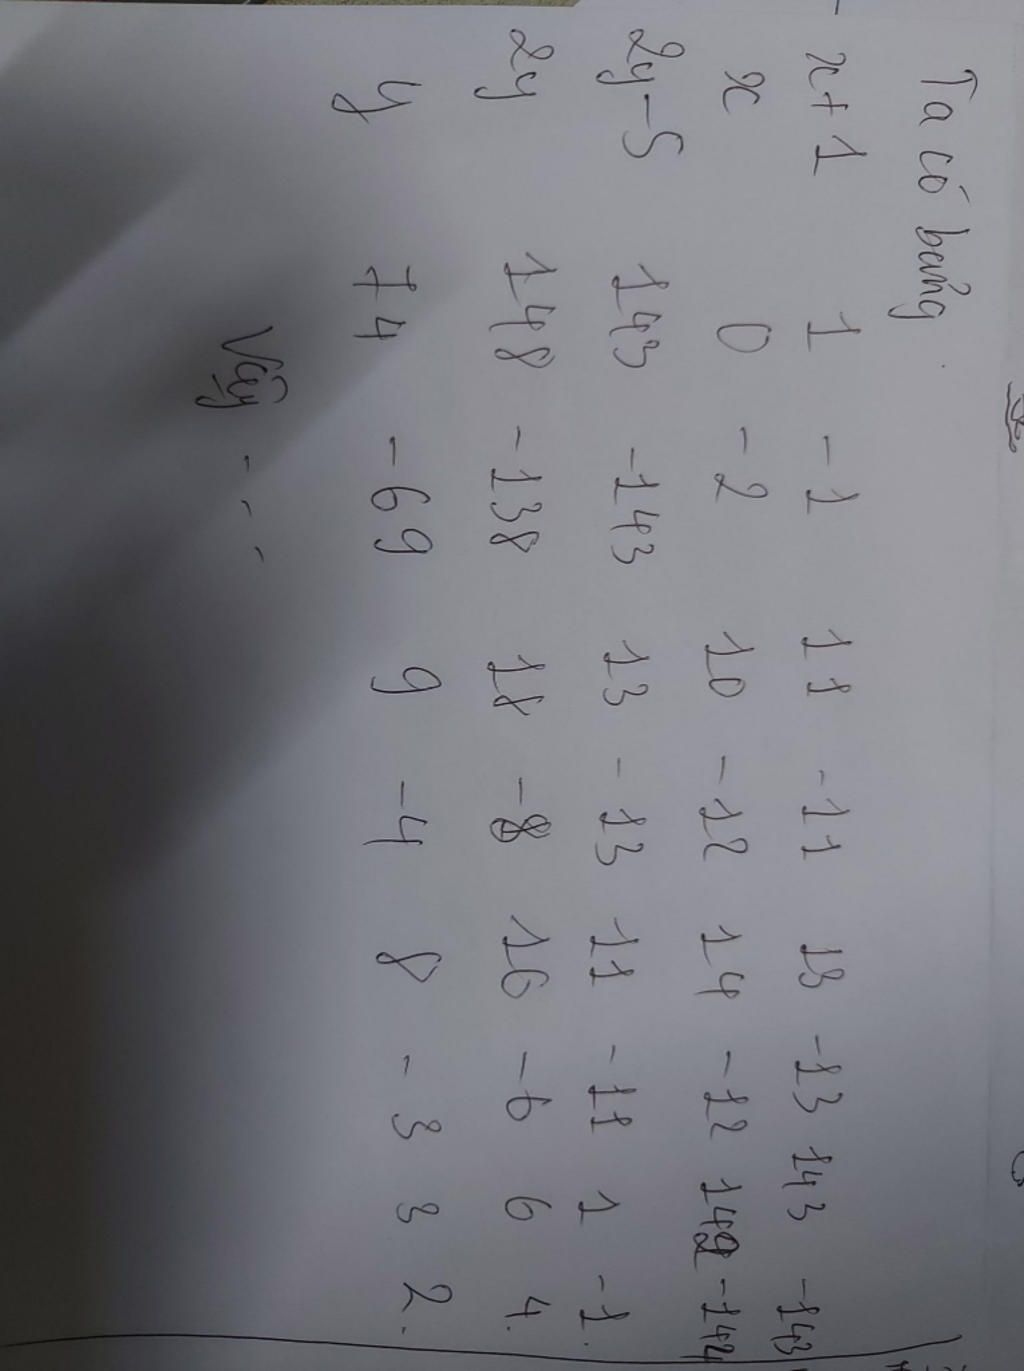 Ta có bảng
x+1 1 -1 11 -11 13 -13 143 -143
x 0 -2 10 -12 14 -12 142 -144
2y-5 143 -143 13 -13 11 -11 1 -1.
2y 148 -138 18 -8 16 -6 6 4.
y 74 -69 9 -4 8 -3 3 2.
Vậy - - -